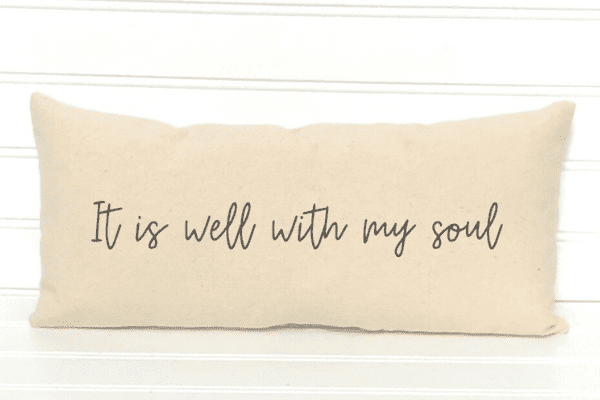 It is well with my soul